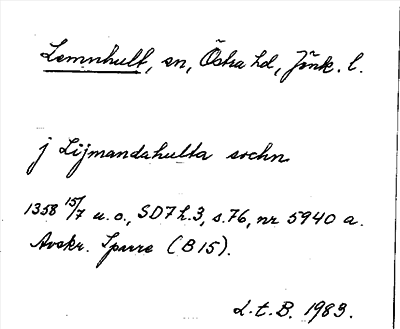 Lemnhult, sn, Östra hd, Jönk. l.
j Lijmandahulta sochn
1358 15/7 u.o., SD7 h.3, s.76, nr 5940 a.
Avskr. Spure (B 15).
L.t.B. 1983.